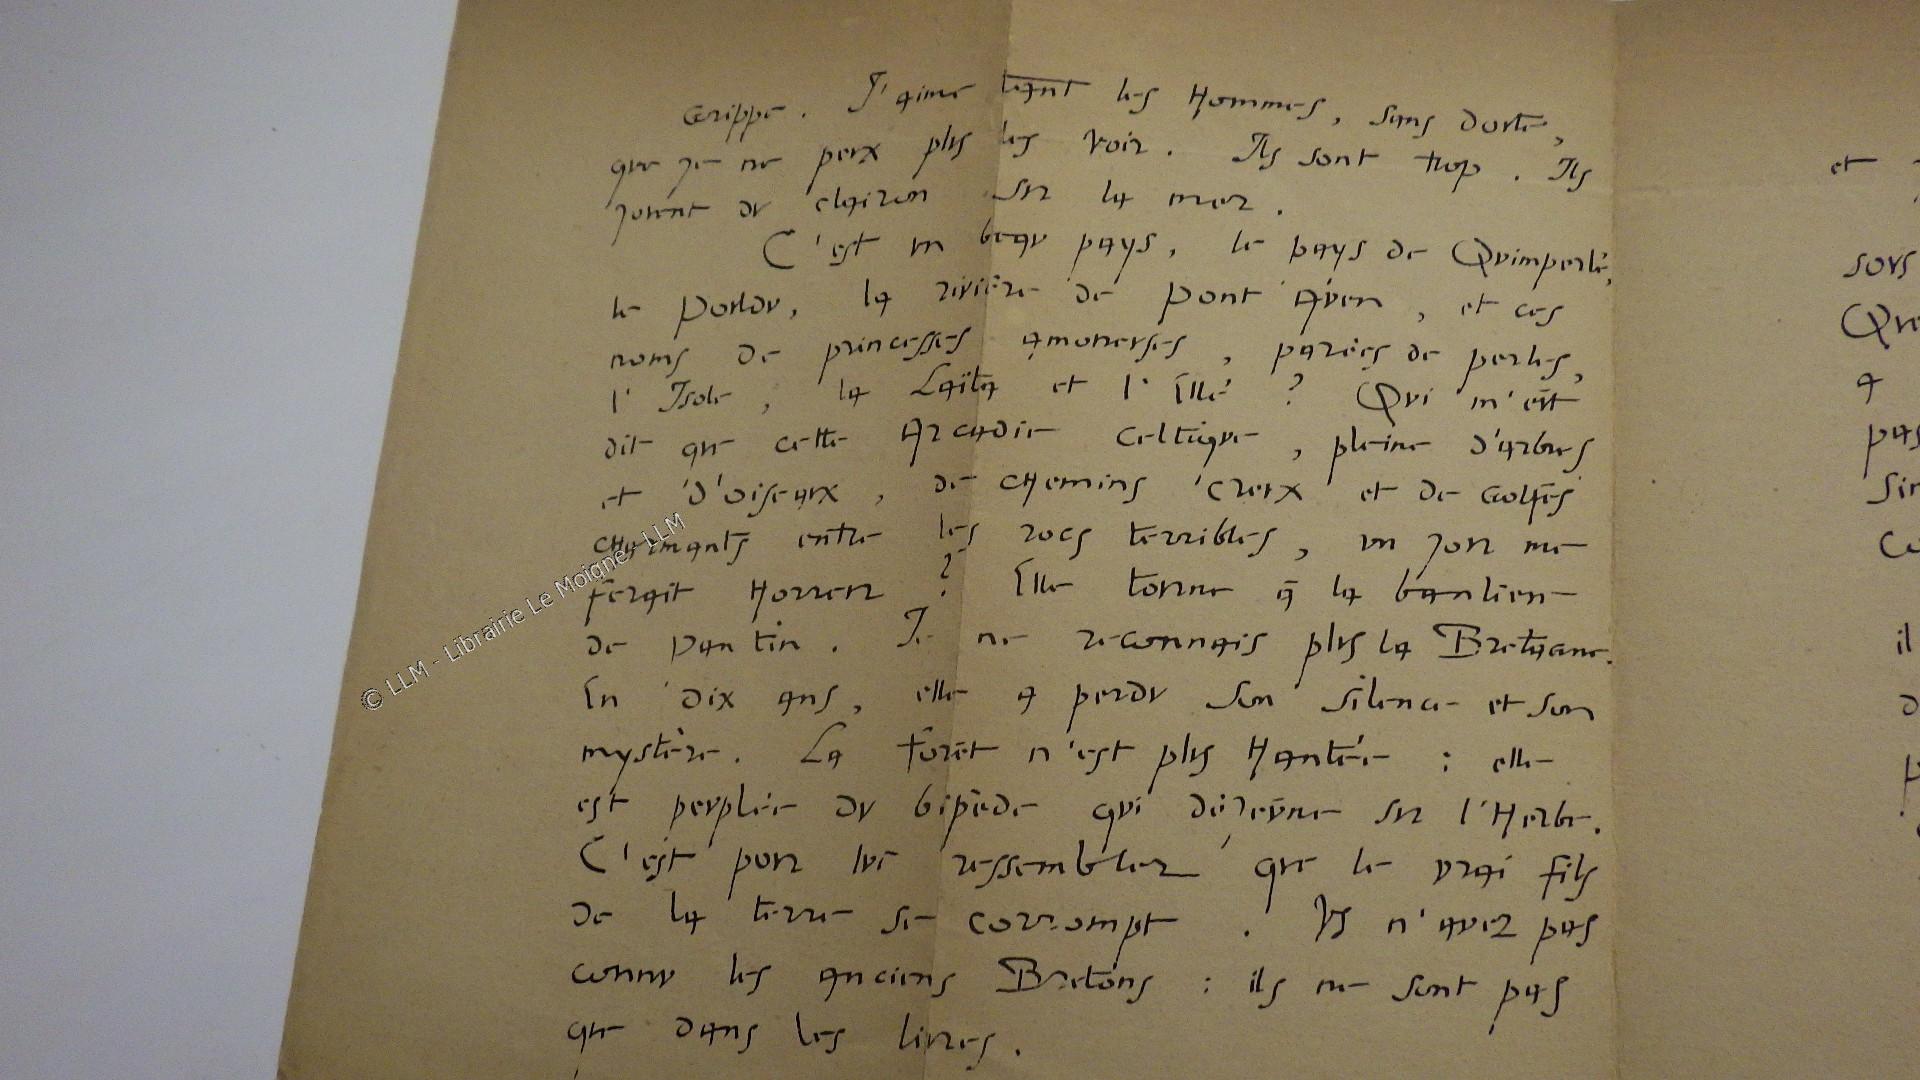 Grippe. J'aime tant les Hommes, sans doute,
que je ne peux plus les voir. Ils sont trop. Ils
jouent du clairon sur la mer.
C'est un beau pays, le pays de Quimperlé,
le Pouldu, la rivière de Pont Aven, et ces
noms de princesses amoureuses, parées de perles,
l'Isole, la Laïta et l'Ellé ? Qui m'eût
dit que cette Arcadie Celtique, pleine d'arbres
et d'oiseaux, de chemins creux et de Golfes
charmants entre les rocs terribles, un jour me
ferait Horreur ? Elle tourne à la banlieue
de Pantin. Je ne reconnais plus la Bretagne.
En dix ans, elle a perdu son silence et son
mystère. La forêt n'est plus Hantée : elle
est peuplée du bipède qui déjeûne sur l'Herbe.
C'est pour lui ressembler que le vrai fils
de la terre se corrompt. Vs n'avez pas
connu les anciens Bretons : ils ne sont pas
que dans les livres.
et
sous
Que
a
pas
il
© LLM - Librairie Le Moigne - LLM